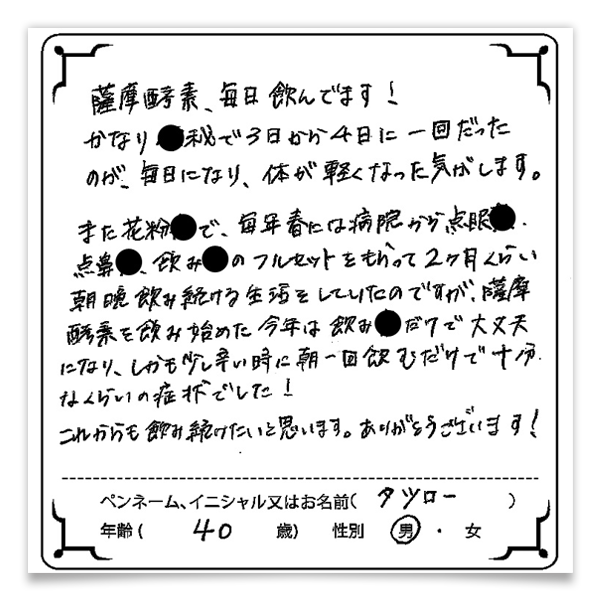 薩摩酵素、毎日飲んでます!
かなり●秘で3日から4日に一回だった
のが、毎日になり、体が軽くなった気がします。
また花粉●で、毎年春には病院から点眼●、
点鼻●、飲み●のフルセットをもらって2ヶ月くらい
朝晩飲み続ける生活をしていたのですが、薩摩
酵素を飲み始めた今年は飲み●だけで大丈夫
になり、しかも少し辛い時に朝一回飲むだけで十分
なくらいの症状でした!
これからも飲み続けたいと思います。ありがとうございます!
ペンネーム、イニシャル又はお名前( タツロー )
年齢( 40 歳) 性別 男・女